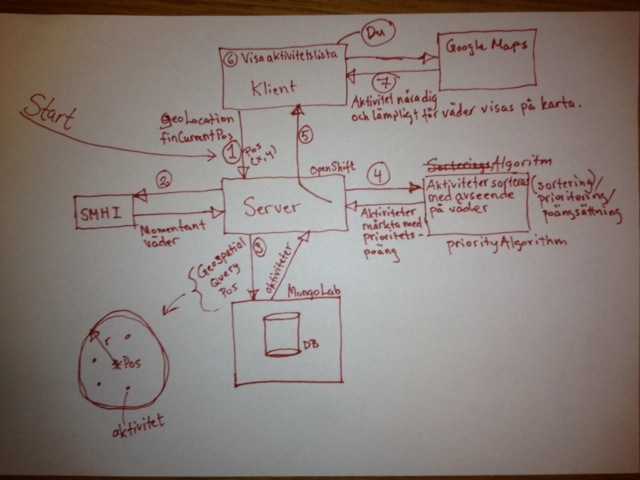 Du
⑥ Visa aktivitetslista
Klient
Google Maps
⑦
Aktivitet nära dig
och lämpligt för väder visas på karta.
Start
geoLocation
finCurrentPos
①
Pos
(x,y)
⑤
OpenShift
Server
②
SMHI
Momentant
väder
④
Sorterings Algoritm
Aktiviteter sorteras
med avseende
på väder
(sortering)/
prioritering/
poängsättning
priorityAlgorithm
Aktiviteter
märkta med
prioritets-
poäng
③
Geospatial
Query
Pos
aktiviteter
MongoLab
DB
r
Pos
aktivitet